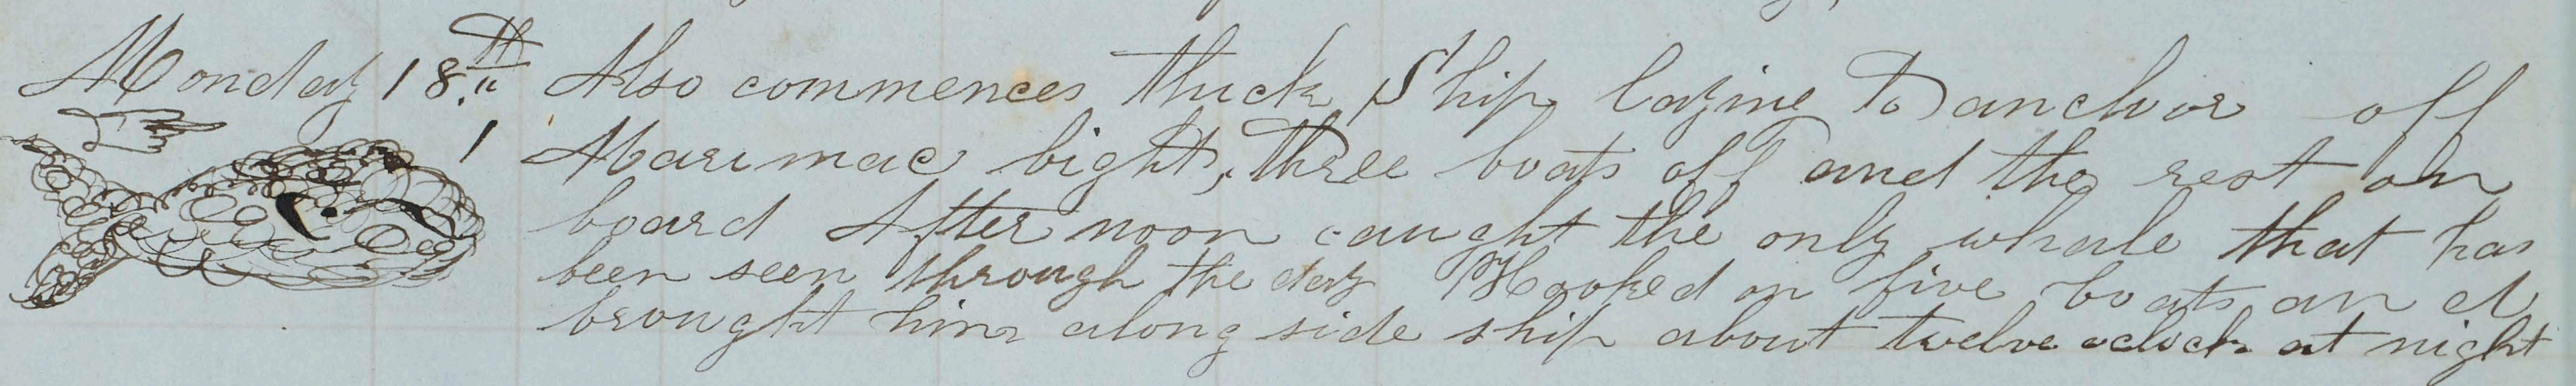 Monday 18.th Also commences thick Ship laying To anchor off
Marimac bight, three boats off and the rest on
board After noon caught the only whale that has
been seen through the day Hooked on five boats and
brought him along side ship about twelve oclock at night